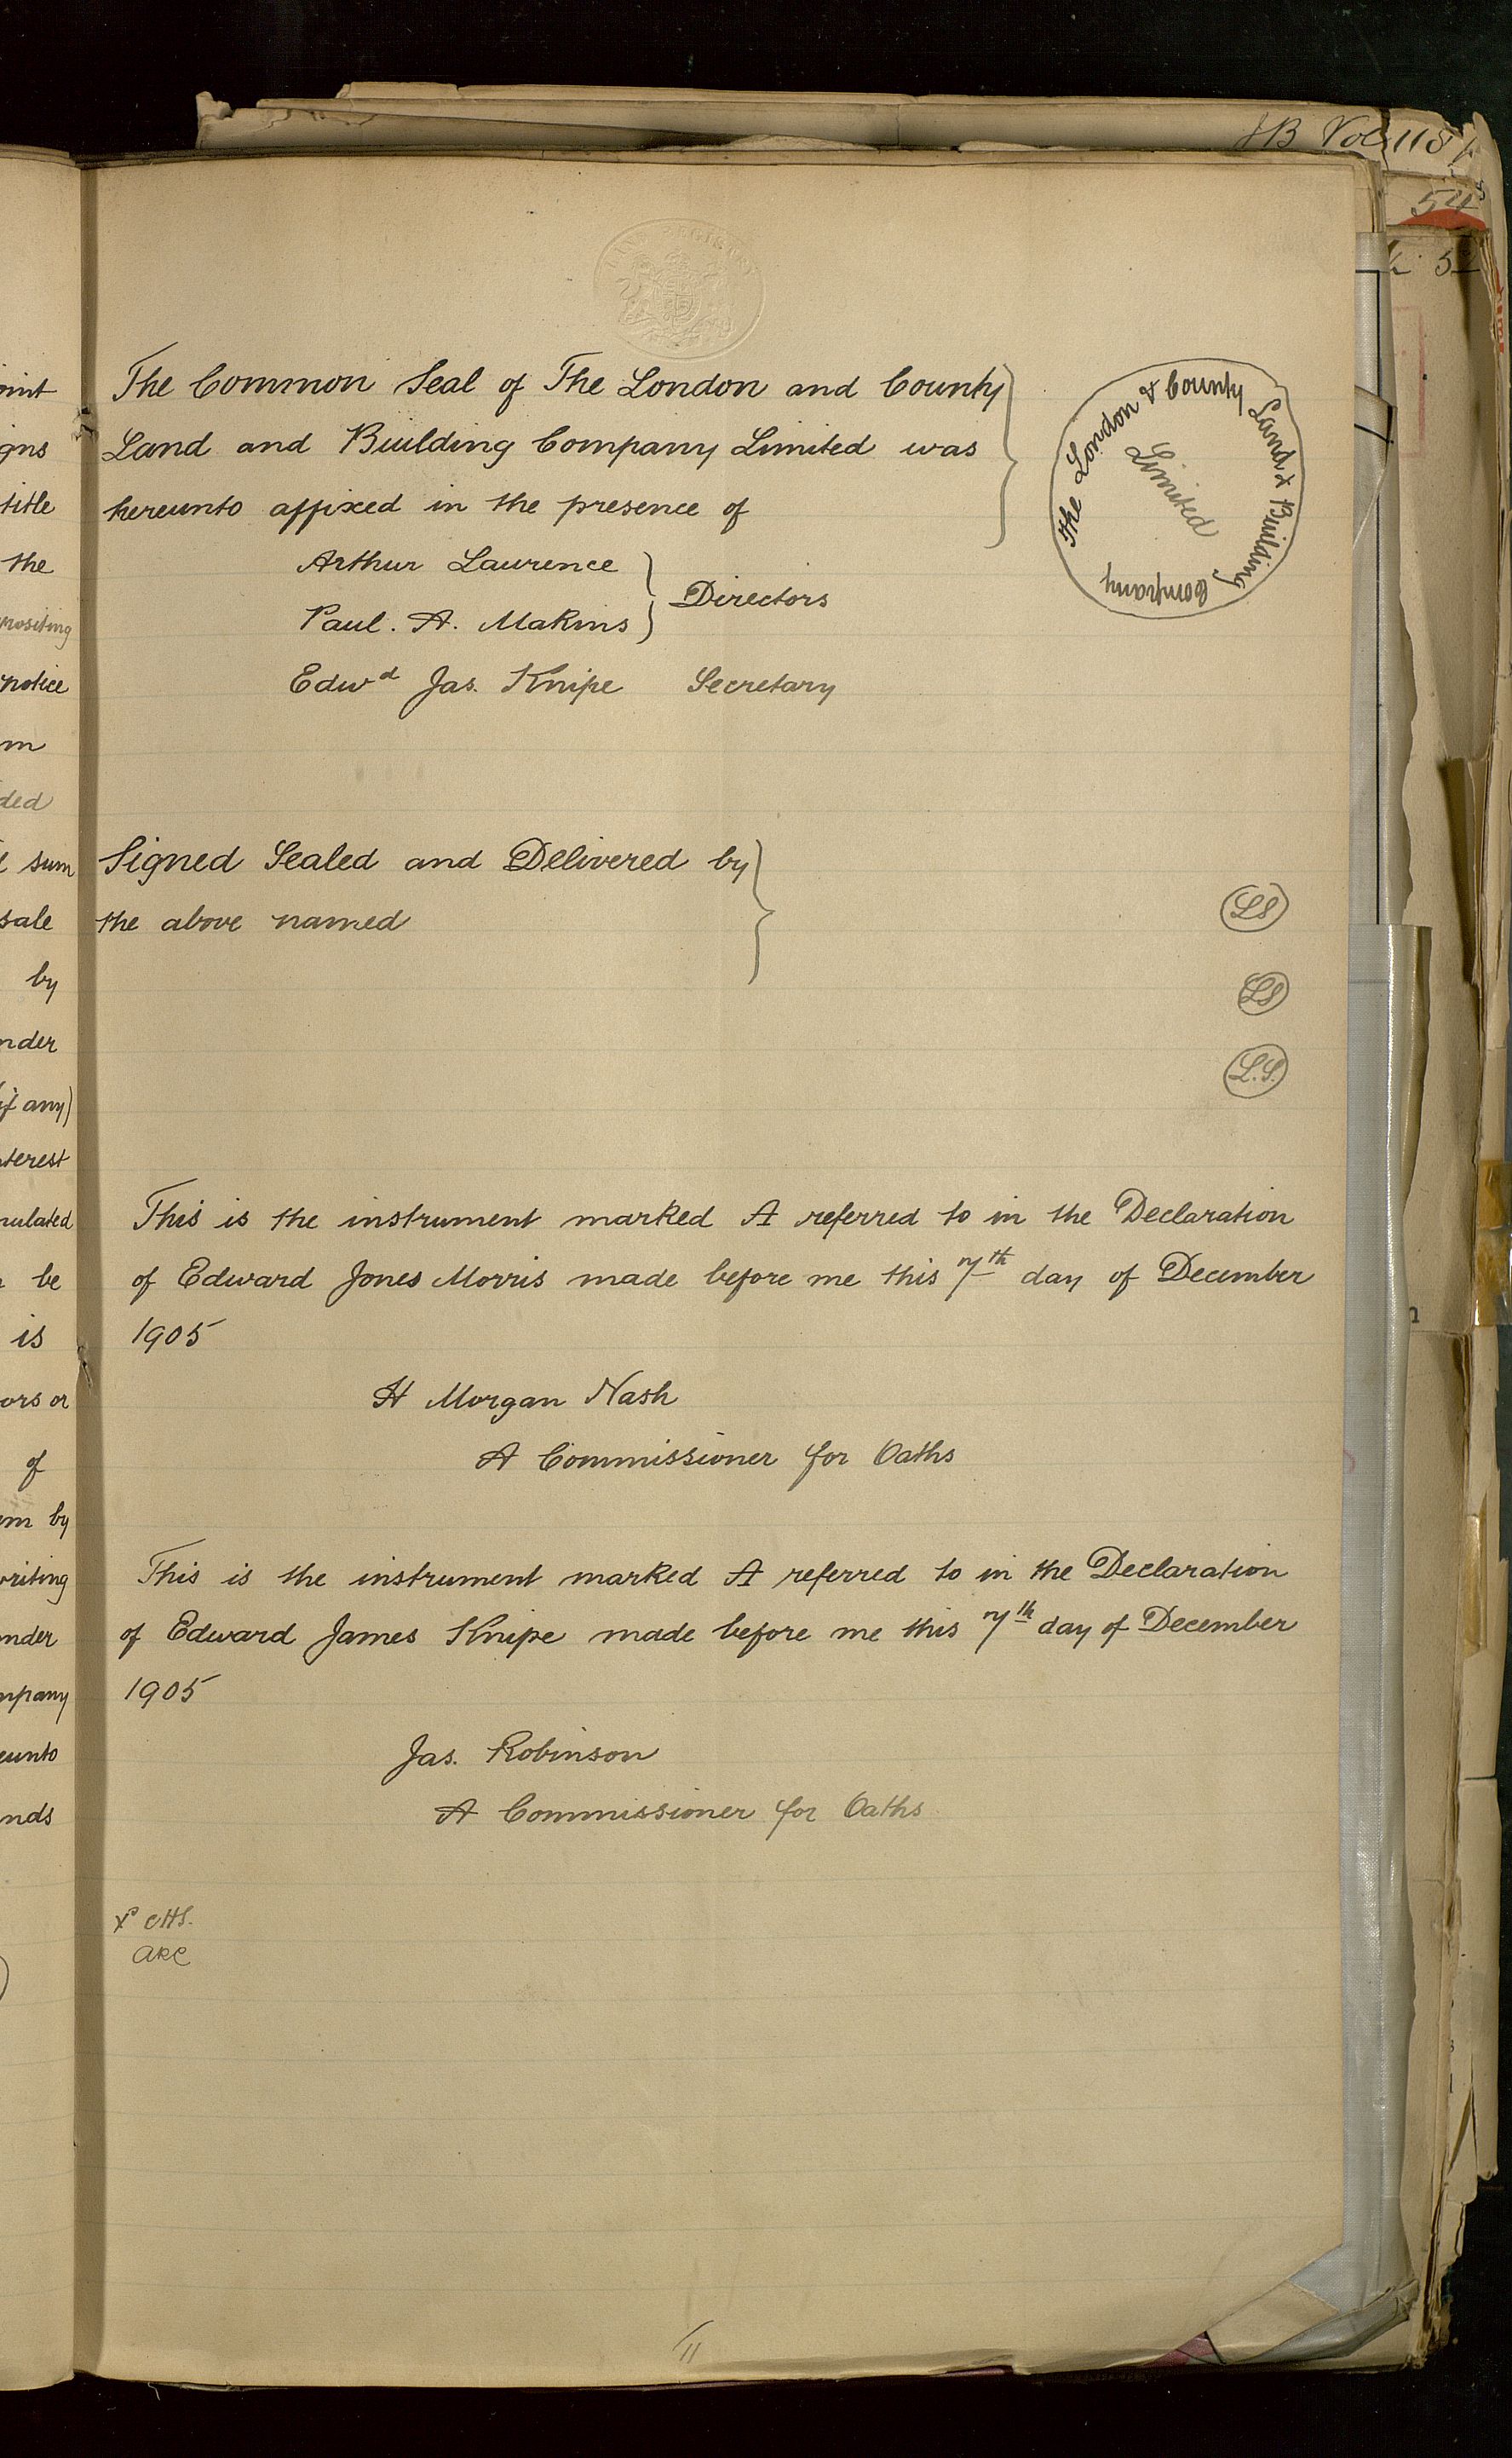 JB Vol 118
54
The Common Seal of The London and County
Land and Building Company Limited was
hereunto affixed in the presence of
The London & County Land & Building Company
Limited
Arthur Laurence
Paul. A. Makins
Directors
Edwd Jas. Knipe Secretary
Signed Sealed and Delivered by
the above named
LS
LS
L.S.
This is the instrument marked A referred to in the Declaration
of Edward Jones Morris made before me this 7th day of December
1905
H Morgan Nash
A Commissioner for Oaths
This is the instrument marked A referred to in the Declaration
of Edward James Knipe made before me this 7th day of December
1905
Jas. Robinson
A Commissioner for Oaths
CHS.
ARC
11
title
the
notice
sum
sale
by
if any)
be
is
of
by